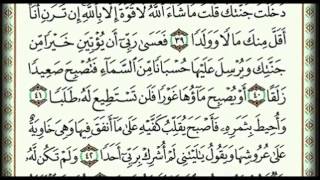 دَخَلْتَ جَنَّتَكَ قُلْتَ مَا شَآءَ ٱللَّهُ لَا قُوَّةَ إِلَّا بِٱللَّهِ إِن تَرَنِ أَنَا۠
أَقَلَّ مِنكَ مَالًا وَوَلَدًا ٣٩ فَعَسَىٰ رَبِّىٓ أَن يُؤْتِيَنِ خَيْرًا مِّن
جَنَّتِكَ وَيُرْسِلَ عَلَيْهَا حُسْبَانًا مِّنَ ٱلسَّمَآءِ فَتُصْبِحَ صَعِيدًا
زَلَقًا ٤٠ أَوْ يُصْبِحَ مَآؤُهَا غَوْرًا فَلَن تَسْتَطِيعَ لَهُۥ طَلَبًا ٤١
وَأُحِيطَ بِثَمَرِهِۦ فَأَصْبَحَ يُقَلِّبُ كَفَّيْهِ عَلَىٰ مَآ أَنفَقَ فِيهَا وَهِىَ خَاوِيَةٌ
عَلَىٰ عُرُوشِهَا وَيَقُولُ يَٰلَيْتَنِى لَمْ أُشْرِكْ بِرَبِّىٓ أَحَدًا ٤٢ وَلَمْ تَكُن لَّهُۥ